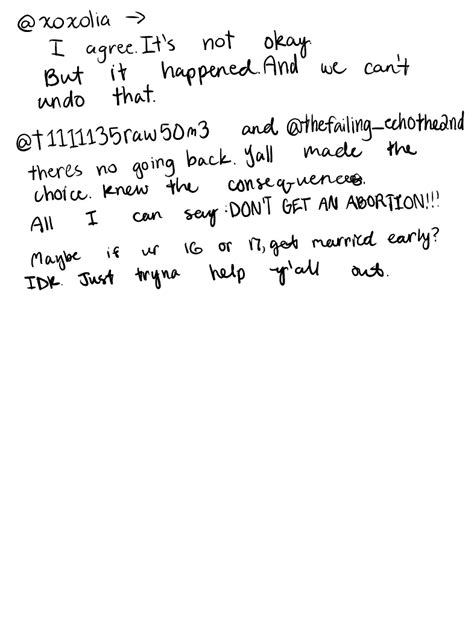 @xoxolia →
I agree. It's not okay.
But it happened. And we can't
undo that.
@t1111135raw50m3 and @thefailing_echothe2nd
theres no going back. Yall made the
choice. Knew the consequences.
All I can say: DON'T GET AN ABORTION!!!
Maybe if ur 16 or 17, get married early?
IDK. Just tryna help y'all out.